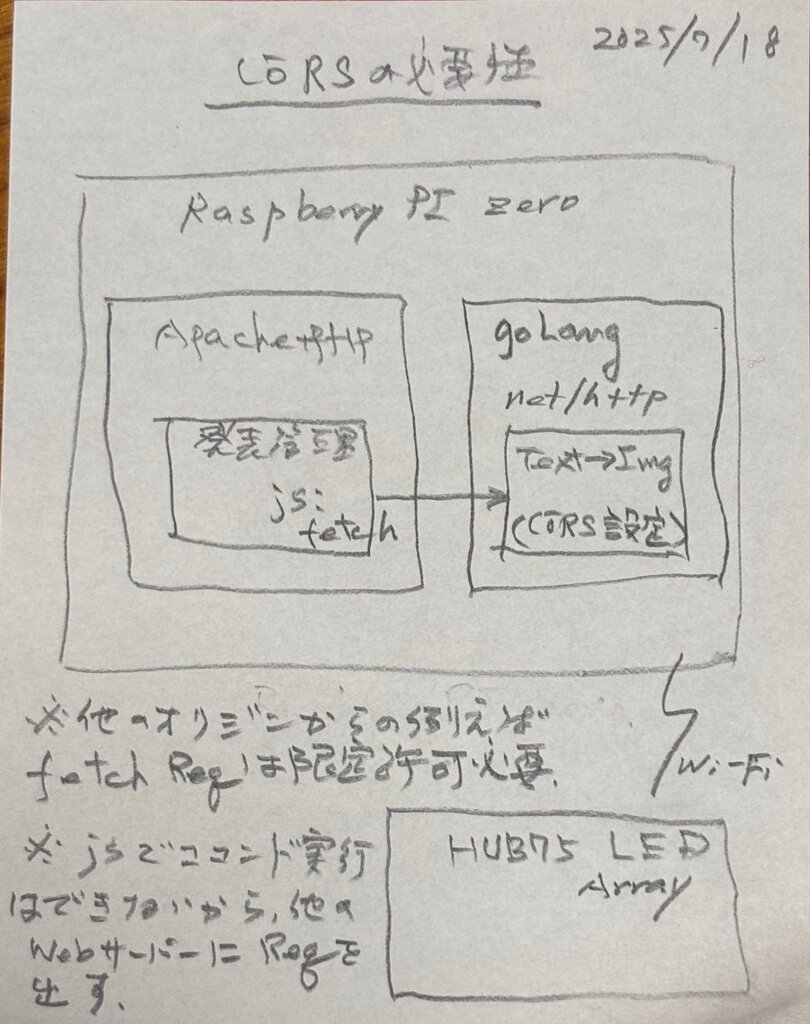 2025/7/18
CORSの必要性
Raspberry PI zero
Apache httpd
発表管理
js:
fetch
goLang
net/http
Text→Img
(CORS設定)
※他のオリジンからの例えば
fetch Reqは限定許可必要.
Wi-Fi
HUB75 LED
Array
※jsでココンド実行
はできないから,他の
Webサーバーに Reqを
出す.